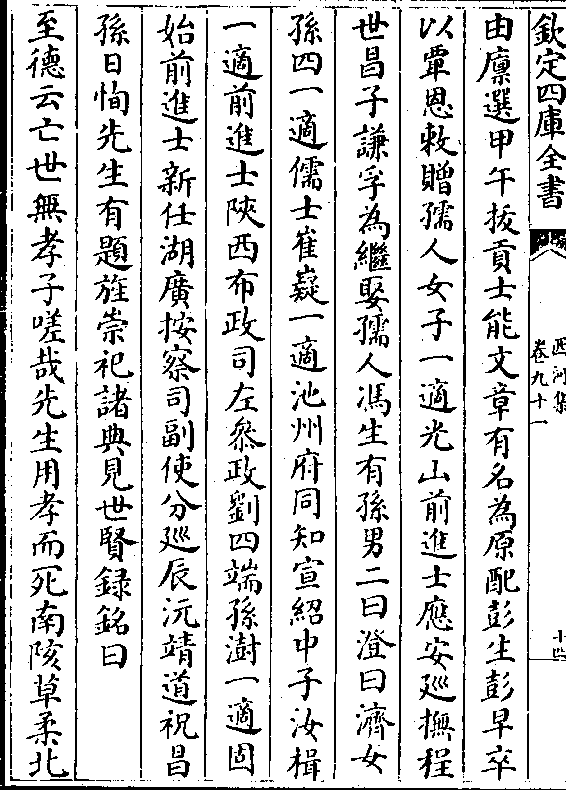 欽定四庫全書
西河集
卷九十一
十四
由廩選甲午拔貢士能文章有名為原配彭生彭早卒
以覃恩敕贈孺人女子一適光山前進士應安廵撫程
世昌子謙孚為繼娶孺人馮生有孫男二曰澄曰濟女
孫四一適儒士崔嶷一適池州府同知宣紹中子汝楫
一適前進士陝西布政司左叅政劉四端孫澍一適固
始前進士新任湖廣按察司副使分廵辰沅靖道祝昌
孫曰恂先生有題旌崇祀諸典見世賢録銘曰
至德云亡世無孝子嗟哉先生用孝而死南陔草柔北